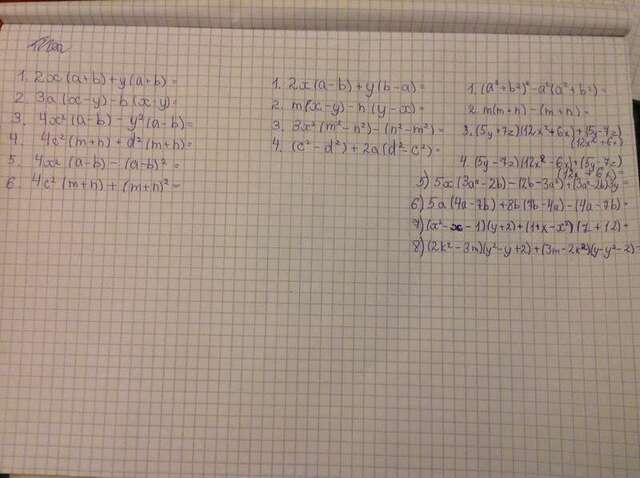 1. 2x(a+b)+y(a+b)=
2. 3a(x-y)-b(x-y)=
3. 4x²(a-b)-y²(a-b)=
4. 4c²(m+n)+d²(m+n)=
5. 4x²(a-b)-(a-b)²=
6. 4c²(m+n)+(m+n)²=
1. 2x(a-b)+y(b-a)=
2. m(x-y)-n(y-x)=
3. 3x²(m²-n²)-(n²-m²)=
4. (c²-d²)+2a(d²-c²)=
1. (a²+b²)²-a²(a²+b²)=
2. m(m+n)-(m+n)=
3. (5y+7z)(12x²+6x)+(5y-7z)
(12x²+6x)
4. (5y-7z)(12x²-6x)+(5y-7z)
(12x+6x)
5) 5x(3a²-2b)-(2b-3a²)+(3a²-2b)3y=
6) 5a(4a-7b)+8b(7b-4a)-(4a-7b)=
7) (x²-x-1)(y+2)+(1+x-x²)
8) (2k²-3m)(y²-y+2)+(3m-2k²)(y-y²-2)=